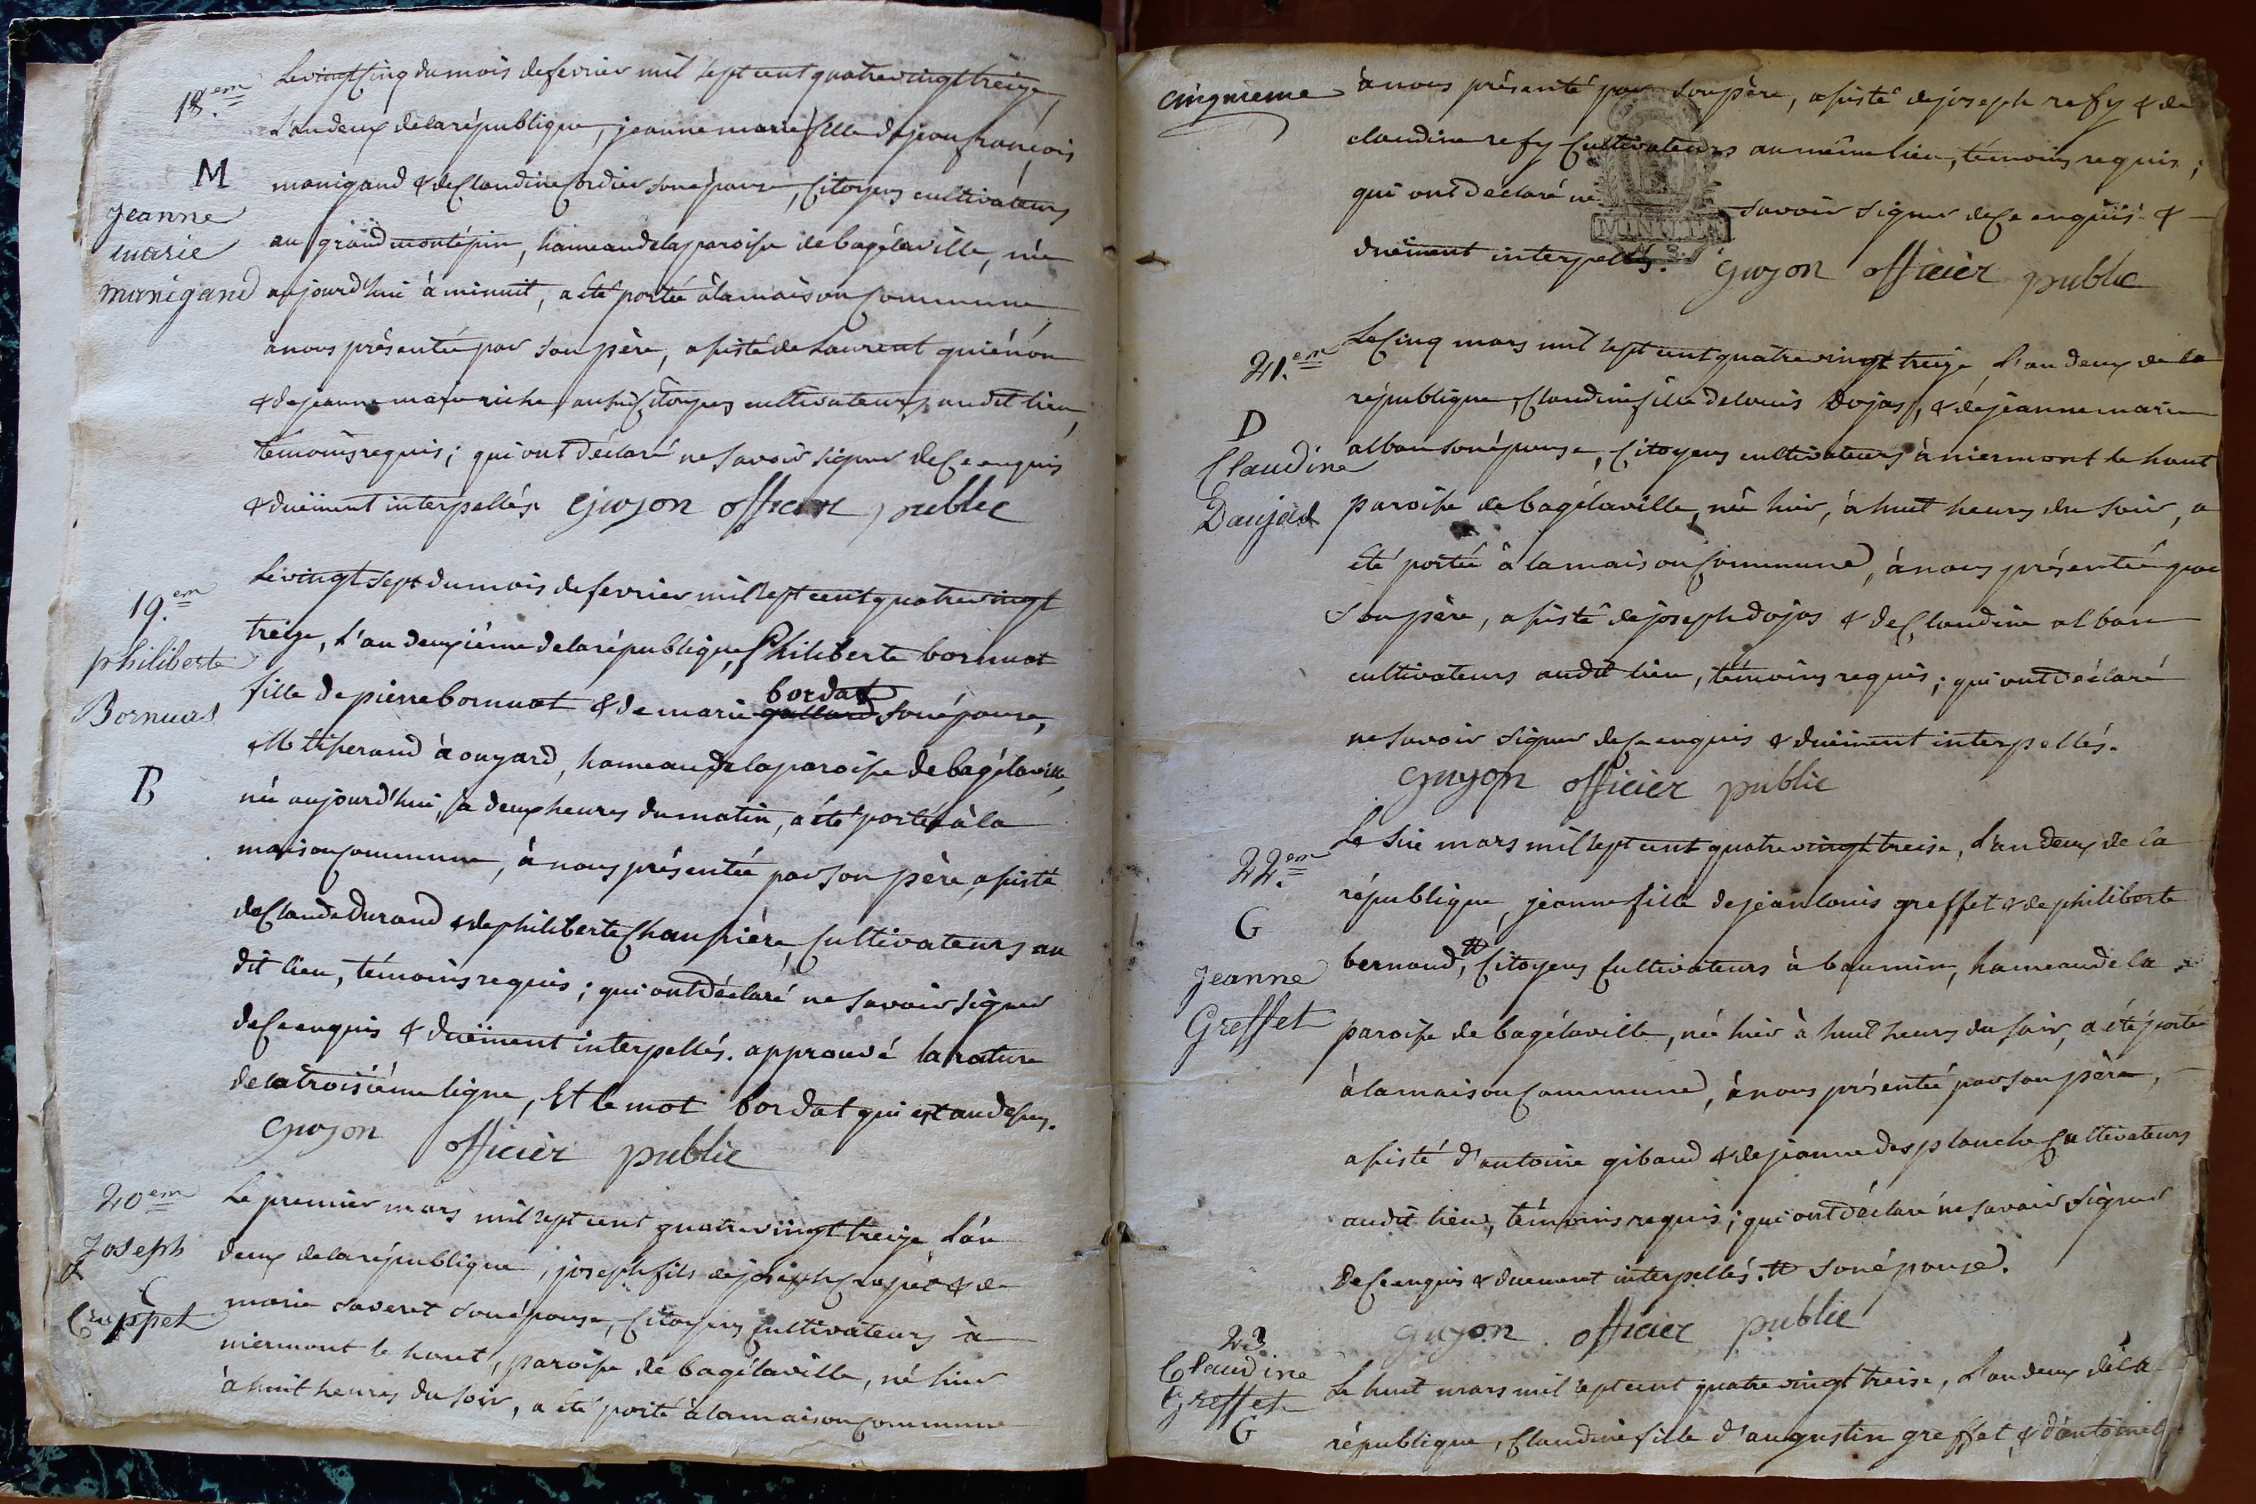 18.em
M
Jeanne
marie
manigand
Le vingt cinq du mois de fevrier mil sept cent quatre vingt treize,
l'an deux de la république, jeanne marie fille de jean françois
manigand & de Claudine Cordier son épouse, Citoyens cultivateurs
au grand montépin, hameau de la paroisse de bagélaville, née
aujourd'hui à minuit, a été portée à la maison Commune
à nous présentée par son père, assisté de Laurent guiénon
& de jeanne marie riche aussi Citoyens cultivateurs audit lieu,
témoins requis; qui ont déclaré ne savoir signer de Ce enquis
& duëment interpellés. Guyon officier public
19.em
philiberte
Bornuat
B
Le vingt sept du mois de fevrier mil sept cent quatre vingt
treize, l'an deuxième de la république, Philiberte bornuat
fille de pierre bornuat & de marie gallard son épouse,
bordat
à ouzard, hameau de la paroisse de bagélaville,
née aujourd'hui, à deux heures du matin, a été portée à la
maison Commune, à nous présentée par son père, assisté
de Claude Durand & de philiberte Cultivateurs au
dit lieu, témoins requis; qui ont déclaré ne savoir signer
de Ce enquis & duëment interpellés. approuvé la rature
de la troisième ligne, Et le mot bordat qui est au dessus.
Guyon officier public
20em
Joseph
C
Croppet
Le premier mars mil sept cent quatre vingt treize l'an
deux de la république, joseph fils de joseph Cropet & de
marie saveret son épouse, Citoyens cultivateurs à
niermont le haut, paroisse de bagélaville, né hier
à huit heures du soir, a été porté à la maison Commune
cinquieme
à nous présenté par son père, assisté de joseph refy & de
claudine refy Cultivateurs au même lieu, témoins requis;
qui ont déclaré ne savoir signer de Ce enquis &
duëment interpellés. Guyon officier public
MINUTES
21.em
D
Claudine
Daujat
Le Cinq mars mil sept cent quatre vingt treize l'an deux de la
république, Claudine fille de louis Dojas, & de jeanne marie
alban son épouse, Citoyens cultivateurs à niermont le haut
paroisse de bagélaville, née hier, à huit heures du soir, a
été portée à la maison Commune, à nous présentée par
son père, assisté de joseph dojas & de Claudine alban
cultivateurs audit lieu, témoins requis; qui ont déclaré
ne savoir signer de Ce enquis & duëment interpellés.
Guyon officier public
22.em
G
Jeanne
Greffet
Le six mars mil sept cent quatre vingt treise, l'an deux de la
république, jeanne fille de jean louis greffet & de philiberte
bernoud, Citoyens Cultivateurs à baumin, hameau de la
paroisse de bagélaville, née hier à huit heures du soir, a été portée
à la maison Commune, à nous présentée par son père,
assisté d'antoine gibaud & de jeanne desplanche Cultivateurs
audit lieu, témoins requis; qui ont déclaré ne savoir signer
de Ce enquis & duement interpellés. son épouse.
Guyon officier public
23
Claudine
Greffet
G
Le huit mars mil sept cent quatre vingt treise, l'an deux de la
république, Claudine fille d'augustin greffet & d'antoinet